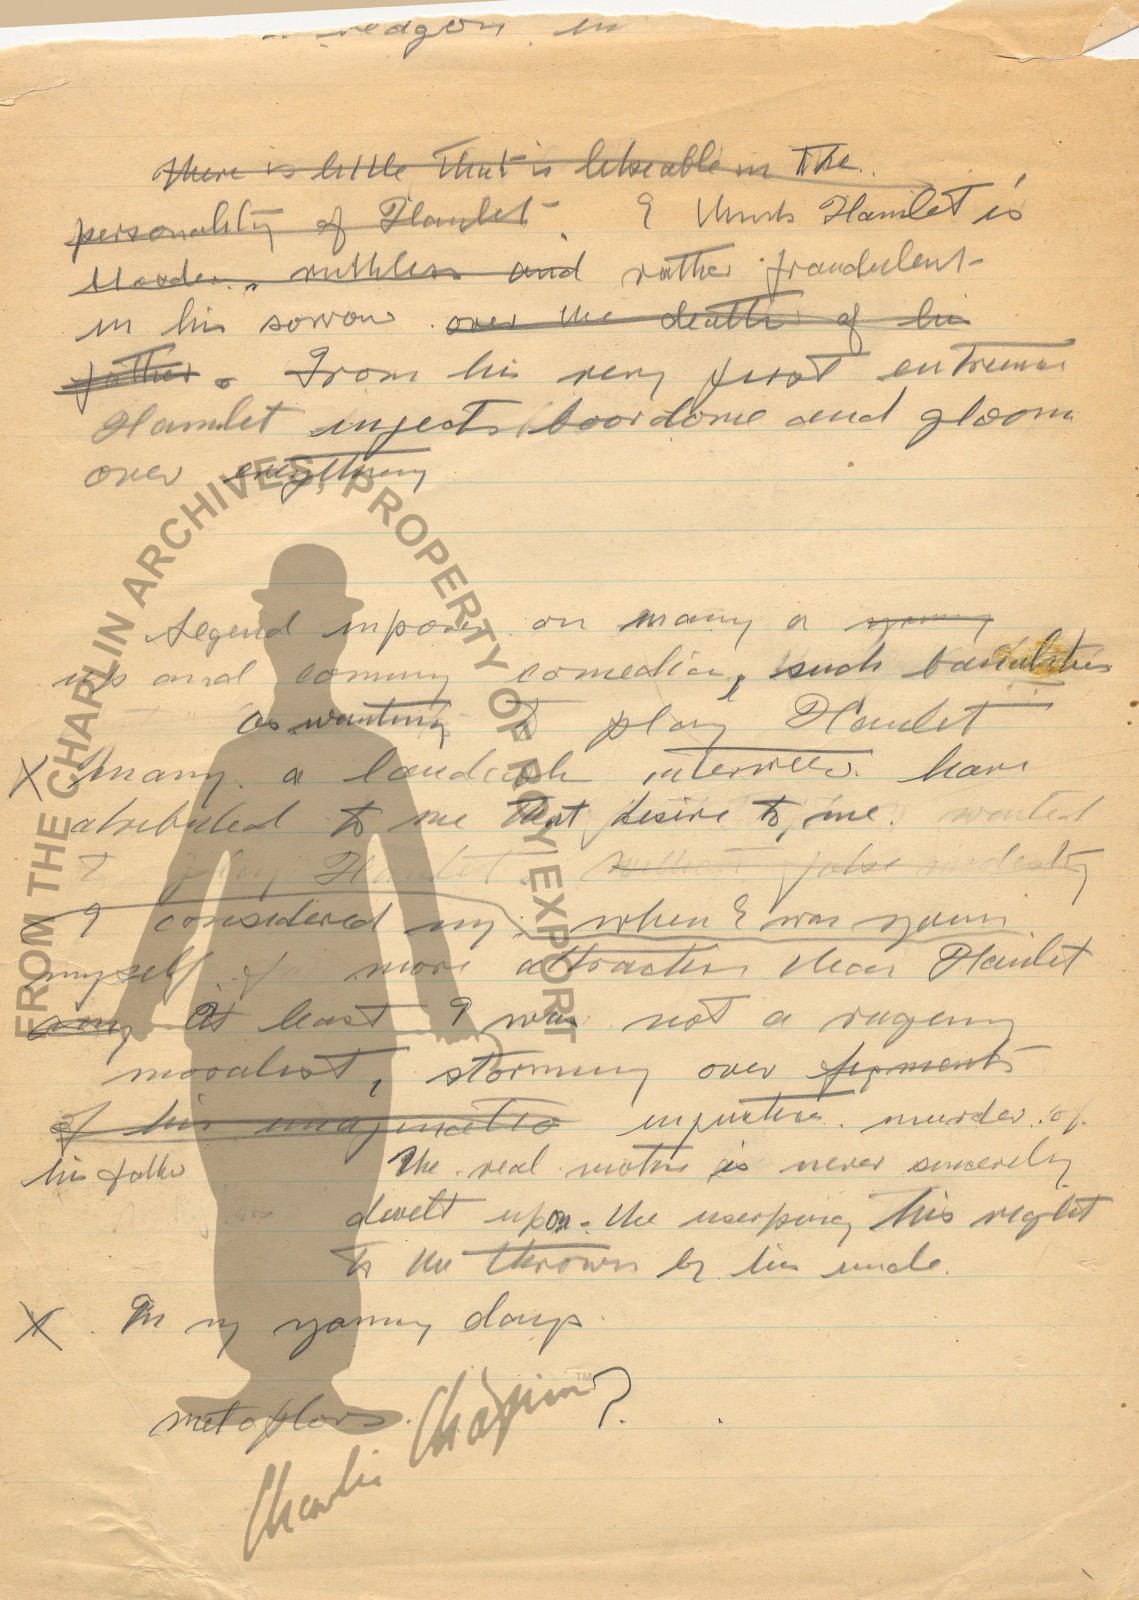 in
There is little that is likeable in the
personality of Hamlet. I think Hamlet is
ruthless and rather fraudulent
in his sorrow over the death of his
father. From his very first entrence
Hamlet injects boordome and gloom
over everything
Legend imposes on many a young
up and coming comedian, such banalities
as wanting to play Hamlet
X Many a interview have
atributed to me that desire to me. wanted
to play Hamlet. Without false modesty
I considered my when I was young
myself of more attraction than Hamlet
any At least I was not a
moralist, storming over figments
of his imagination injustice. murder of
his father The real motive is never sincerely
dwelt upon. the userping his right
to the throwne by his uncle.
X In my young days.
metaphors. ?
FROM THE CHAPLIN ARCHIVES, PROPERTY OF ROY EXPORT
Charlie Chaplin TM